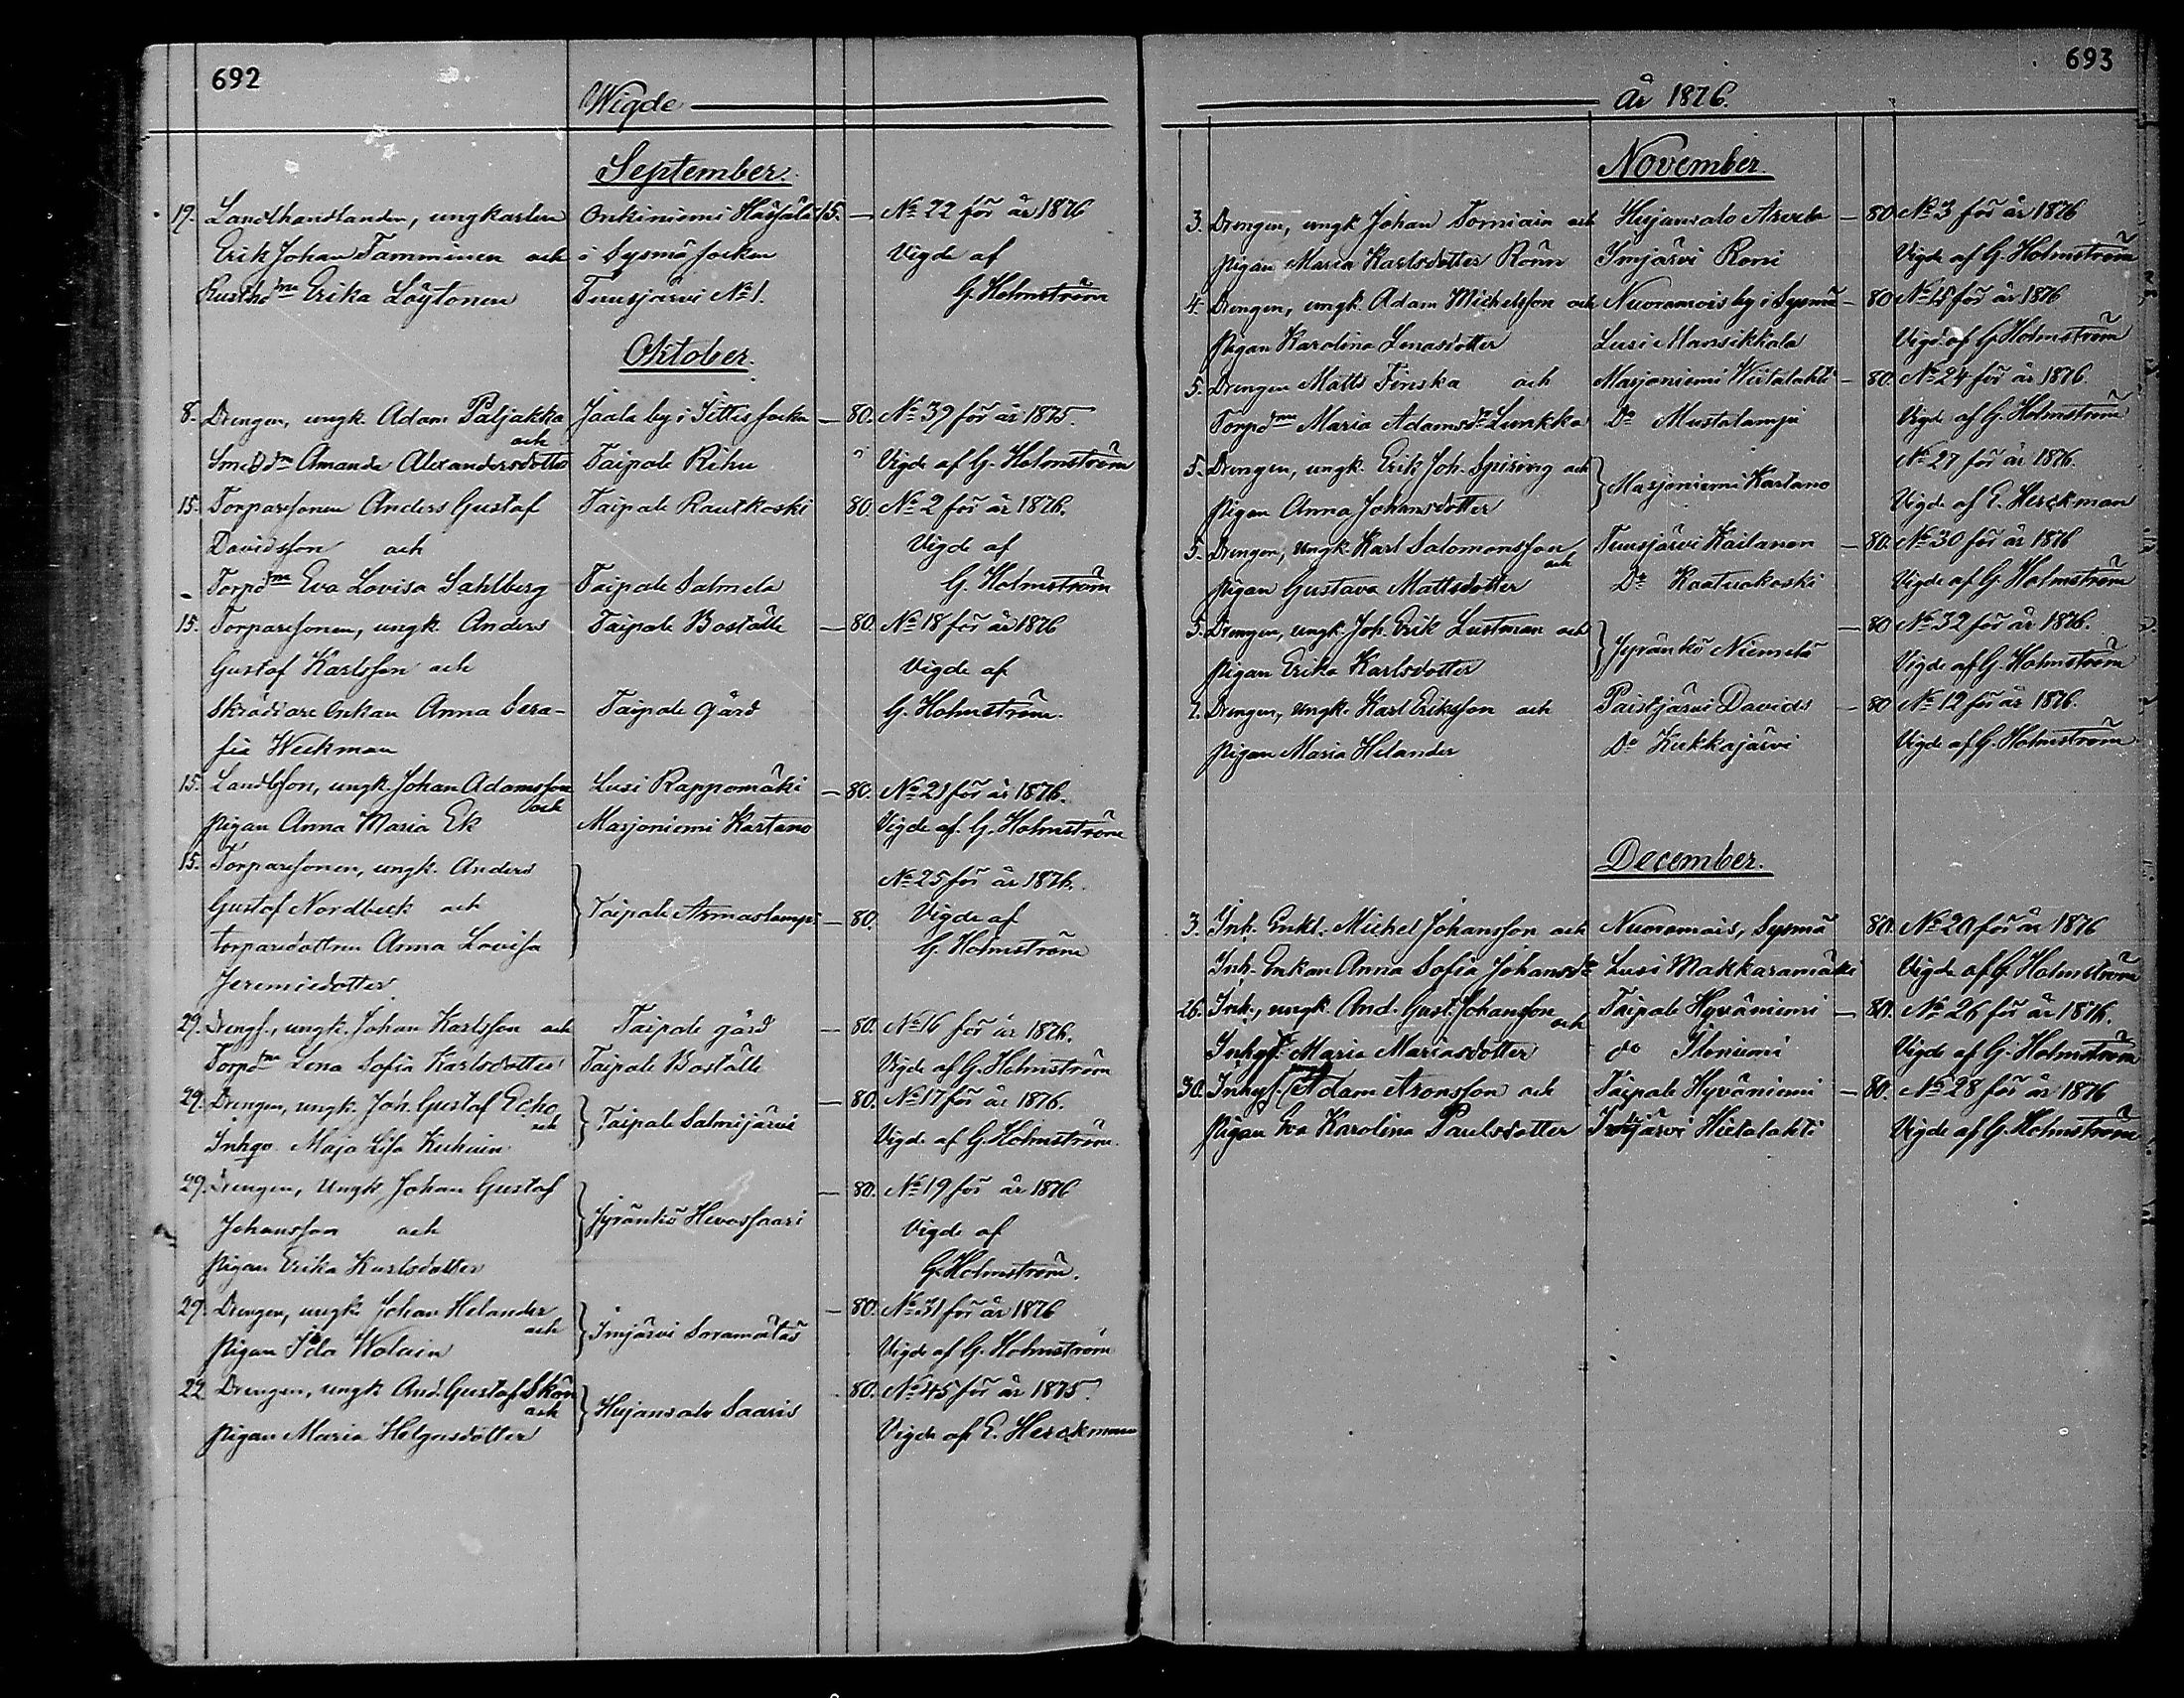 692
Wigde
September.
19. Landthandlanden, ungkarlen Onkiniemi Hassala 15. — No 22 för år 1876
Erik Johan Tamminen och i Sysmä socken Vigde af
Rusthdrn Erika Löytönen Tuusjärvi No 1. G. Holmström
Oktober.
8. Drengen, ungk. Adam Paljakka Jaala by i Iittis socken — 80. No 39 för år 1875.
och
Smeddrn Amanda Alexandersdotter Taipale Rihu Vigde af G. Holmström
15. Torparesonen Anders Gustaf Taipale Rautkoski 80. No 2 för år 1876.
Davidsson och Vigde af
Torpdrn Eva Lovisa Sahlberg Taipale Salmela G. Holmström
15. Torparesonen, ungk. Anders Taipale Boställe — 80. No 18 för år 1876
Gustaf Karlsson och Vigde af
Skräddare Enkan Anna Sera- Taipale gård G. Holmström.
fia Weckman
15. Landbson, ungk. Johan Adamsson Lusi Rappomäki — 80. No 21 för år 1876.
och
pigan Anna Maria Ek Marjoniemi Kartano Vigde af G. Holmström
15. Torparesonen, ungk. Anders No 25 för år 1876.
Gustaf Nordbeck och Taipale Armaslampi — 80. Vigde af
torparedottren Anna Lovisa G. Holmström
Jeremiedotter
29. Drengs., ungk. Johan Karlsson och Taipale gård — 80. No 16 för år 1876.
Torpdrn Lena Sofia Karlsdotter Taipale Boställe Vigde af G. Holmström
29. Drengen, ungk. Joh. Gustaf Echo, — 80. No 17 för år 1876.
och Taipale Salmijärvi
Inhgo Maja Lisa Kuhuin Vigde af G. Holmström
29. Drengen, Ungk. Johan Gustaf — 80. No 19 för år 1876
Johansson och Jyränkö Hevossaari Vigde af
pigan Erika Karlsdotter G. Holmström.
29. Drengen, ungk. Johan Helander — 80. No 31 för år 1876
och Imjärvi Soramäläs
pigan Ida Wolain Vigde af G. Holmström
22 Drengen, ungk. And. Gustaf Skön 80. No 45 för år 1875.
och Hujansalo Saaris
pigan Maria Helgasdotter Vigde af E. Herckman
693
År 1876.
November.
3. Drengen, ungk Johan Torniain och Hujansalo — 80 No 3 för år 1876
pigan Maria Karlsdotter Rönn Imjärvi Roni Vigde af G. Holmström
4. Drengen, ungk. Adam Michelsson och Nuoramois by i Sysmä — 80 No 15 för år 1876
pigan Karolina Lenasdotter Lusi Mansikkala Vigd. af G. Holmström
5. Drengen Matts Finska och Marjoniemi Wiitalahti — 80. No 24 för år 1876.
Torpdrn Maria Adamsdr Lunkka Do Mustalampi Vigde af G. Holmström
5. Drengen, ungk. Erik Joh. Spiring och No 27 för år 1876.
Marjoniemi Kartano
pigan Anna Johansdotter Vigde af E. Herckman
5. Drengen, ungk. Karl Salomonsson, Tuusjärvi Kaitanen — 80. No 30 för år 1876
och
pigan Gustava Mattsdotter Do Kaatuakoski Vigde af G. Holmström
5. Drengen, ungk. Joh. Erik Lustman och — 80 No 32 för år 1876.
Jyränkö Niemelä
pigan Erika Karlsdotter Vigde af G. Holmström
Drengen, ungk. Karl Eriksson och Paistjärvi Davids — 80 No 12 för år 1876.
pigan Maria Helander Do Kukkajärvi Vigde af G. Holmström
December.
3. Inh. Enkl. Michel Johansson och Nuoramois, Sysmä 80. No 20 för år 1876
Inh. Enkan Anna Sofia Johansdr Lusi Makkaramäki Vigde af G. Holmström
26. Inh., ungk. And. Gust. Johansson Taipale Hyväniemi — 80. No 26 för år 1876.
och
Maria Mariasdotter do Iloniemi Vigde af G. Holmström
30. Inhys. ungk Adam Aronsson och Taipale Hyväniemi — 80. No 28 för år 1876
pigan Eva Karolina Paulsdotter Hietalahti Vigde af G. Holmström